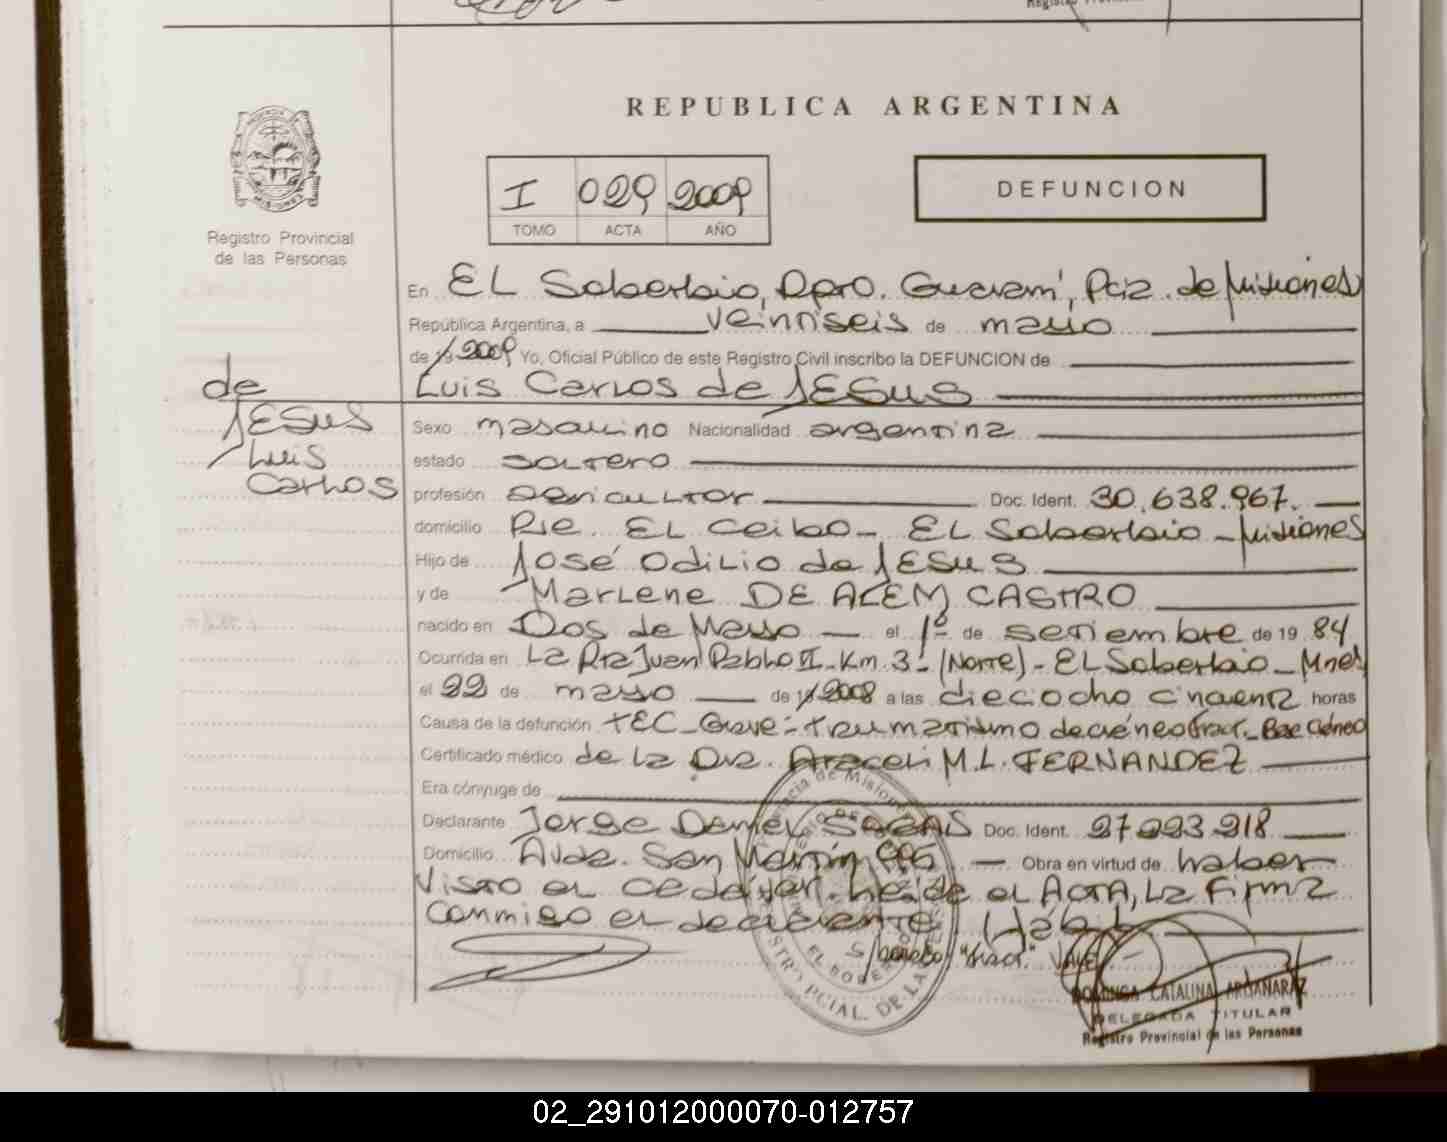 REPUBLICA ARGENTINA
I 029 2009
TOMO ACTA AÑO
DEFUNCION
Registro Provincial
de las Personas
En EL Soberbio, Dpto. Guaraní, Pcia. de Misiones
República Argentina, a veintiseis de mayo
de 19 2009 Yo, Oficial Público de este Registro Civil inscribo la DEFUNCION de
Luis Carlos de JESUS
de
JESUS
Luis
Carlos
Sexo masculino Nacionalidad argentina
estado soltero
profesión agricultor Doc. Ident. 30.638.967.
domicilio Pje. EL Ceibo - EL Soberbio - Misiones
Hijo de José Odilio de JESUS
y de Marlene DE ALEM CASTRO
nacido en Dos de Mayo el 1º de setiembre de 19 84
Ocurrida en La Rta Juan Pablo II - Km. 3 - (Norte) - EL Soberbio - Mnes
el 22 de mayo de 19 2008 a las dieciocho cincuenta horas
Causa de la defunción TEC - Grave - traumatismo de cráneo fract. - Base Cráneo
Certificado médico de la Dra. Araceli M.L. FERNANDEZ
Era cónyuge de
Declarante Jorge Daniel Doc. Ident. 27.223.218
Domicilio Avda. San Martín Obra en virtud de haber
visto el cadáver. Leída el ACTA, la firma
conmigo el declarante
"fract." Vale
DOMINGA CATALINA ARGAÑARAZ
DELEGADA TITULAR
Registro Provincial de las Personas
02_291012000070-012757